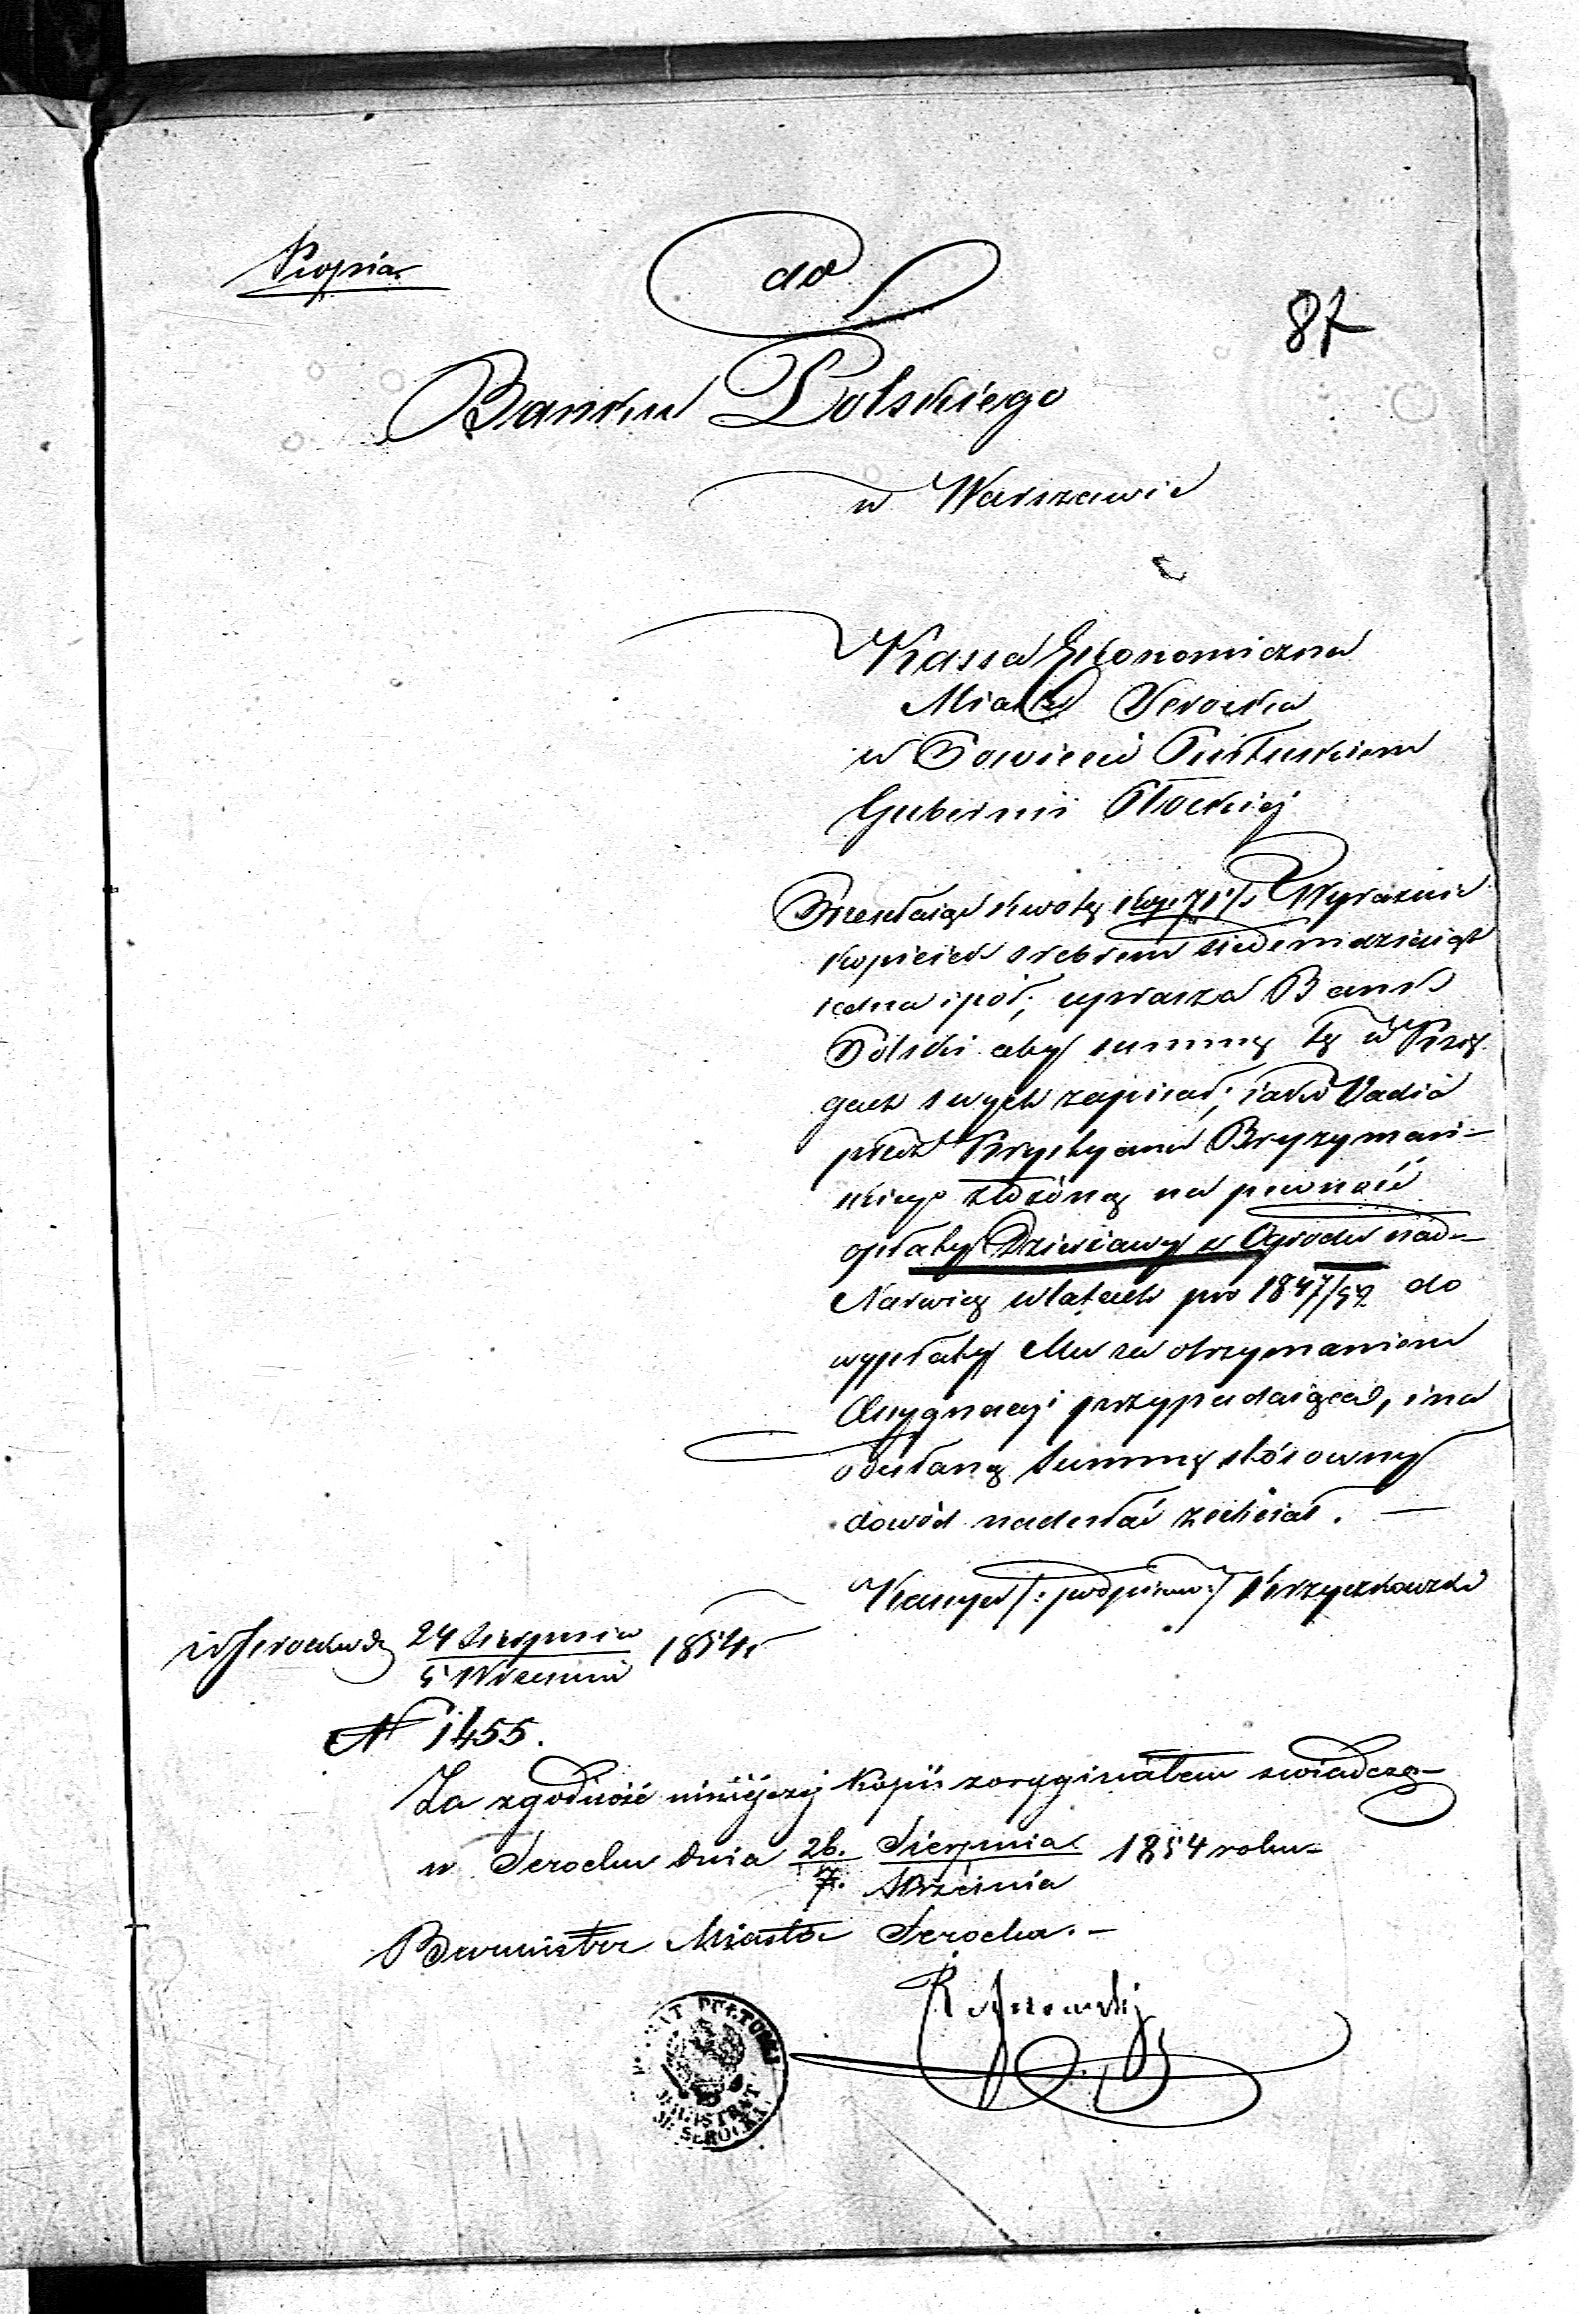 Kopia
do
87
Banku Polskiego
w Warszawie
Kassa Ekonomiczna
Miasta Serocka
w Powiecie Pułtuskiem
Gubernii Płockiej
Przesłaiąc kwotę kop. 71½ Wyraźnie
kopieiek srebrem siedemdziesiąt
iedna i pół, uprasza Bank
Polski aby summę tę w Księ
gach swych zapisał, iako Vadia
przez Krystyana Bryzyman-
skiego złożoną na pewność
opłaty Dzierżawy z Ogrodu nad-
Narwią w latach pro 1847/52 do
wypłaty Mu za otrzymaniem
Assygnacyi przypadaiąca, i na
odesłaną Summę stósowny
dowód nadesłać zechciał. —
Kassyer /: podpisano :/
w Serocku d. 24 Sierpnia 1854 r
5 Wrzesnia
N 1455.
Za zgodność ninieyszej kopii z oryginałem swiadczę-
w Serocku dnia 26. Sierpnia 1854 roku-
7. Wrzesnia
Burmistrz Miasta Serocka. -
PUŁTUSKI
MAGISTRAT
M. SEROCKA